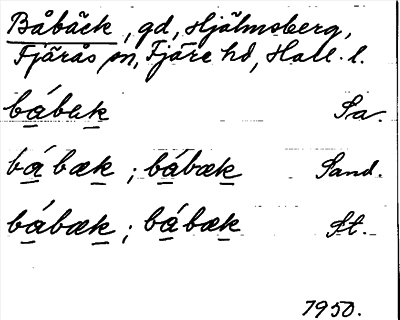 Båbäck, gd, Hjälmsberg,
Fjärås sn, Fjäre hd, Hall. l.
bábek Sa.
bábæk ; bábæk Sand.
bábæk ; bábæk St.
1950.